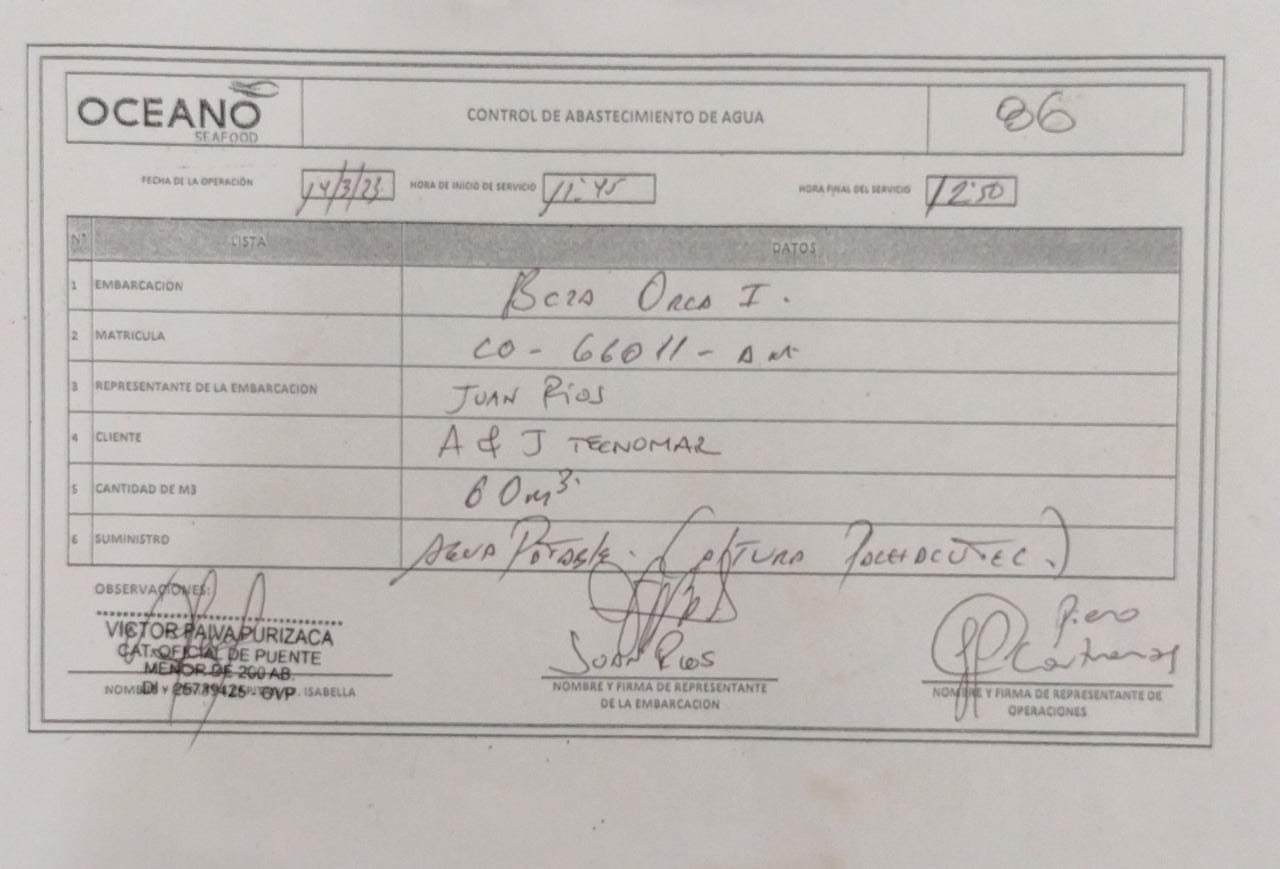 OCEANO
SEAFOOD
CONTROL DE ABASTECIMIENTO DE AGUA
86
FECHA DE LA OPERACIÓN 14/3/23 HORA DE INICIO DE SERVICIO 11:45 HORA FINAL DEL SERVICIO 12:50
N° LISTA DATOS
1 EMBARCACIÓN Orca I.
2 MATRICULA CO-66011-AM
3 REPRESENTANTE DE LA EMBARCACION JUAN Ríos
4 CLIENTE A & J TECNOMAR
5 CANTIDAD DE M3 60m3.
6 SUMINISTRO AGUA POTABLE. (ALTURA PACHACUTEC.)
OBSERVACIONES:
VICTOR PAIVA PURIZACA
CAT. OFICIAL DE PUENTE
MENOR DE 200 AB.
DI 25789425 - OVP
ISABELLA
JUAN Rios
NOMBRE Y FIRMA DE REPRESENTANTE
DE LA EMBARCACION
Piero
Contreras
NOMBRE Y FIRMA DE REPRESENTANTE DE
OPERACIONES